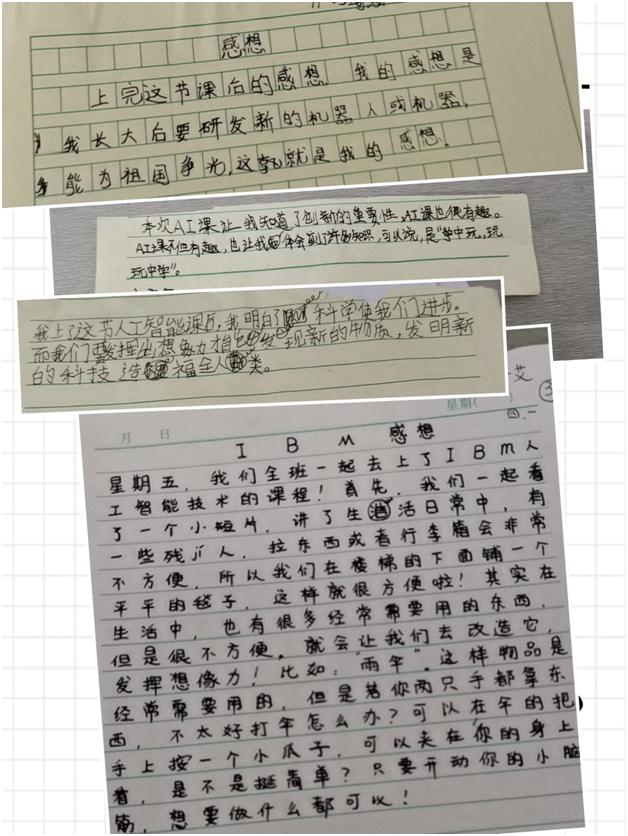 感想
上完这节课后的感想 我的感想是
我长大后要研发新的机器人或机器,
能为祖国争光,这就是我的感想.
本次AI课让我知道了创新的重要性,AI课也很有趣。
AI课不但有趣,也让我体会到了许多知识,可以说,是“学中玩,玩
玩中学”。
我上了这节人工智能课后,我明白了科学使我们进步。
而我们要发挥出想象力创发现新的物质,发明新
的科技 造福全人类。
艾
星期(
月 日
四.一
IBM 感想
星期五,我们全班一起去上了IBM人
工智能技术的课程!首先,我们一起看
了一个小短片,讲了生活日常中,有
一些残jí人,拉东西或者行李箱会非常
不方便,所以我们在楼梯的下面铺一个
平平的毯子,这样就很方便啦!其实在
生活中,也有很多经常需要用的东西,
但是很不方便。就会让我们去改造它,
发挥想像力!比如:“雨伞”。这样物品是
经常需要用的,但是若你两只手都拿东
西,不太好打伞怎么办?可以在伞的把
手上按一个小爪子,可以夹在你的身上
着,是不是挺简单?只要开动你的小脑
筋,想要做什么都可以!